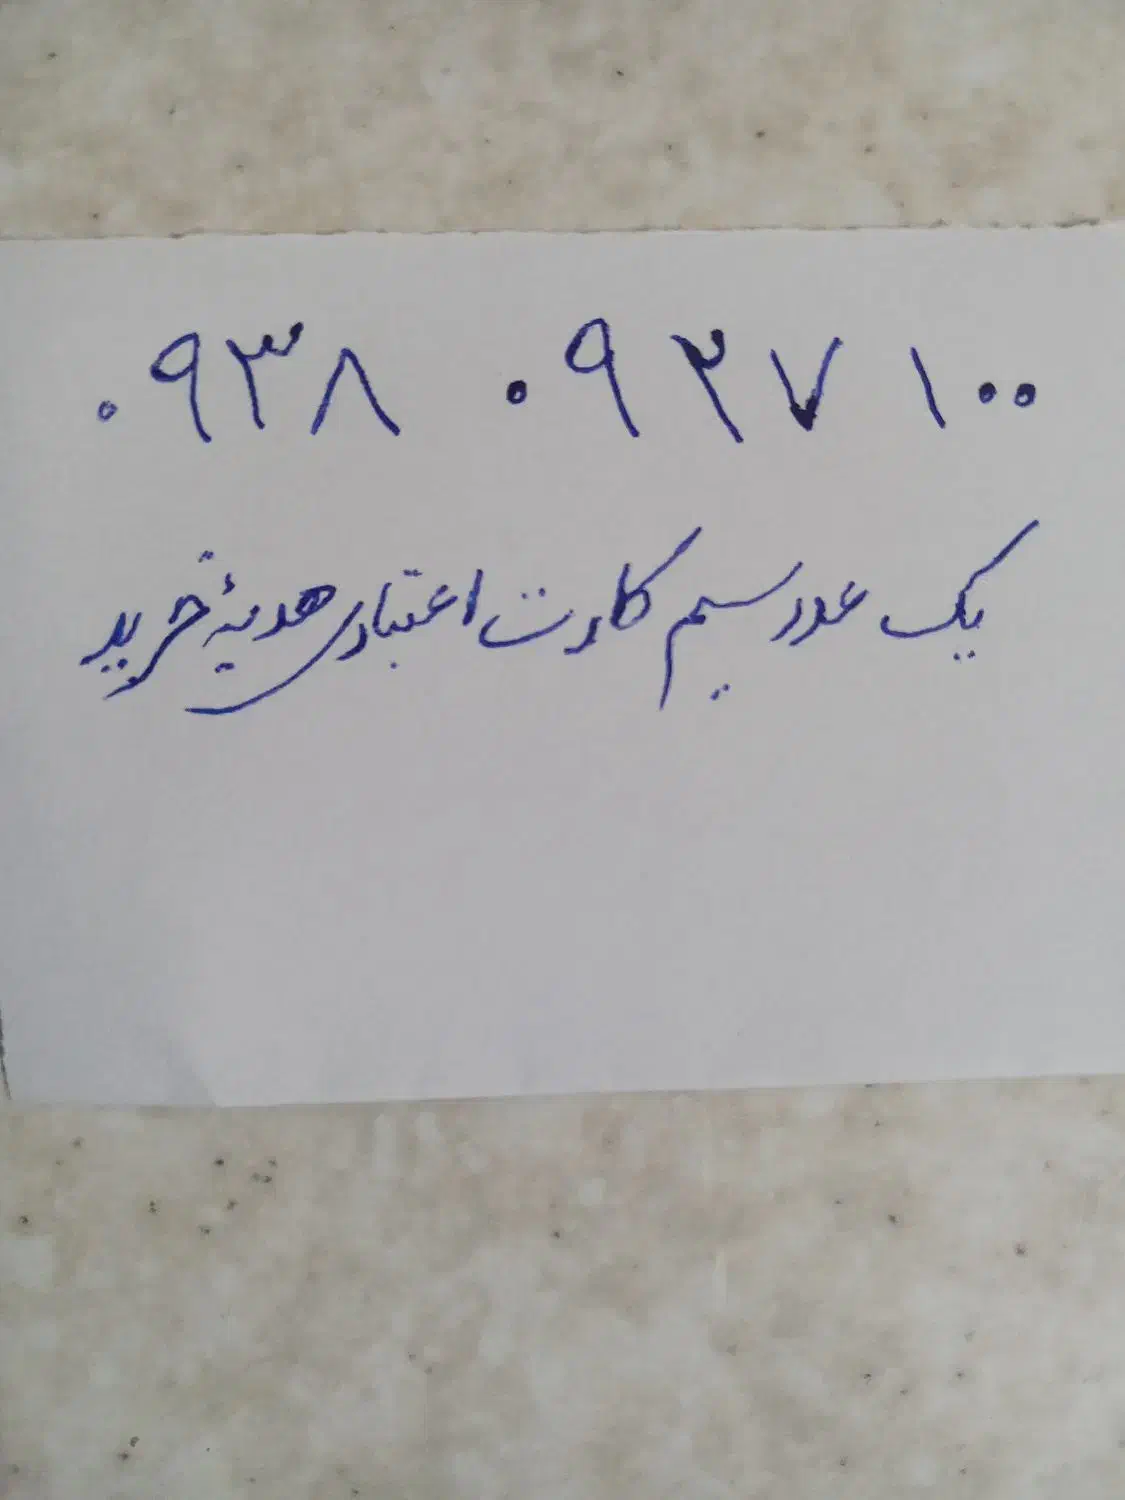 ۰۹۳۸ ۰۹۳۷۱۰۰
یک عدد سیم کارت اعتباری هدیهٔ خرید